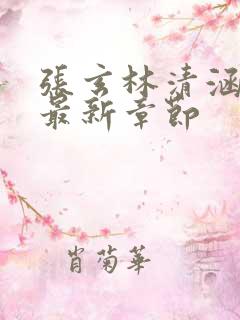 張玄林清涵
最新章節
肖菊華